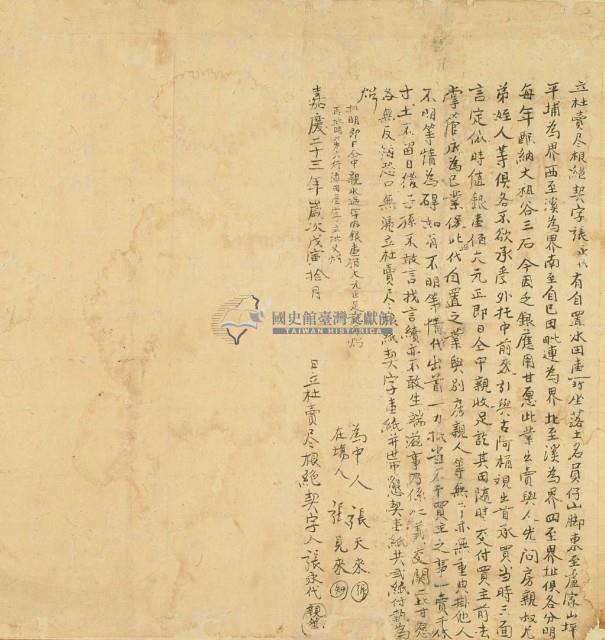 立杜賣尽根絕契字張永代有自置水田壹叚坐落土名員仔山脚東至盧家山坪
平埔為界西至溪為界南至自己田毗連為界北至溪為界四至界址俱各分明
每年配納大租谷三石今因乏銀應用甘愿此業出賣與人先問房親叔兄
弟姪人等俱各不欲承受外托中前來引與古阿桶視出首承買當時三面
言定依時值銀壹佰六元正即日仝中親收足訖其田隨時交付買主前去
掌管永為己業保此田代自置之業與別房親人等無干亦無重典掛他人
不明等情為碍如有不明等情代出首一力抵當不干買主之事一賣千休
寸土不留日後子孫不敢言找言續亦不敢生端滋事乃係仁義交關二比甘愿
各無反悔恐口無憑立杜賣尽根絕契字壹紙并世帶懇契壹紙共弍紙付執為
炤
批明即日仝中親收過字內銀壹佰六元正足訖炤
嘉慶二十三年歲次戊寅拾月
日立杜賣尽根絕契字人張永代
親筆
為中人 張天來
在塲人 張見來
國史館臺灣文獻館
TAIWAN HISTORICA